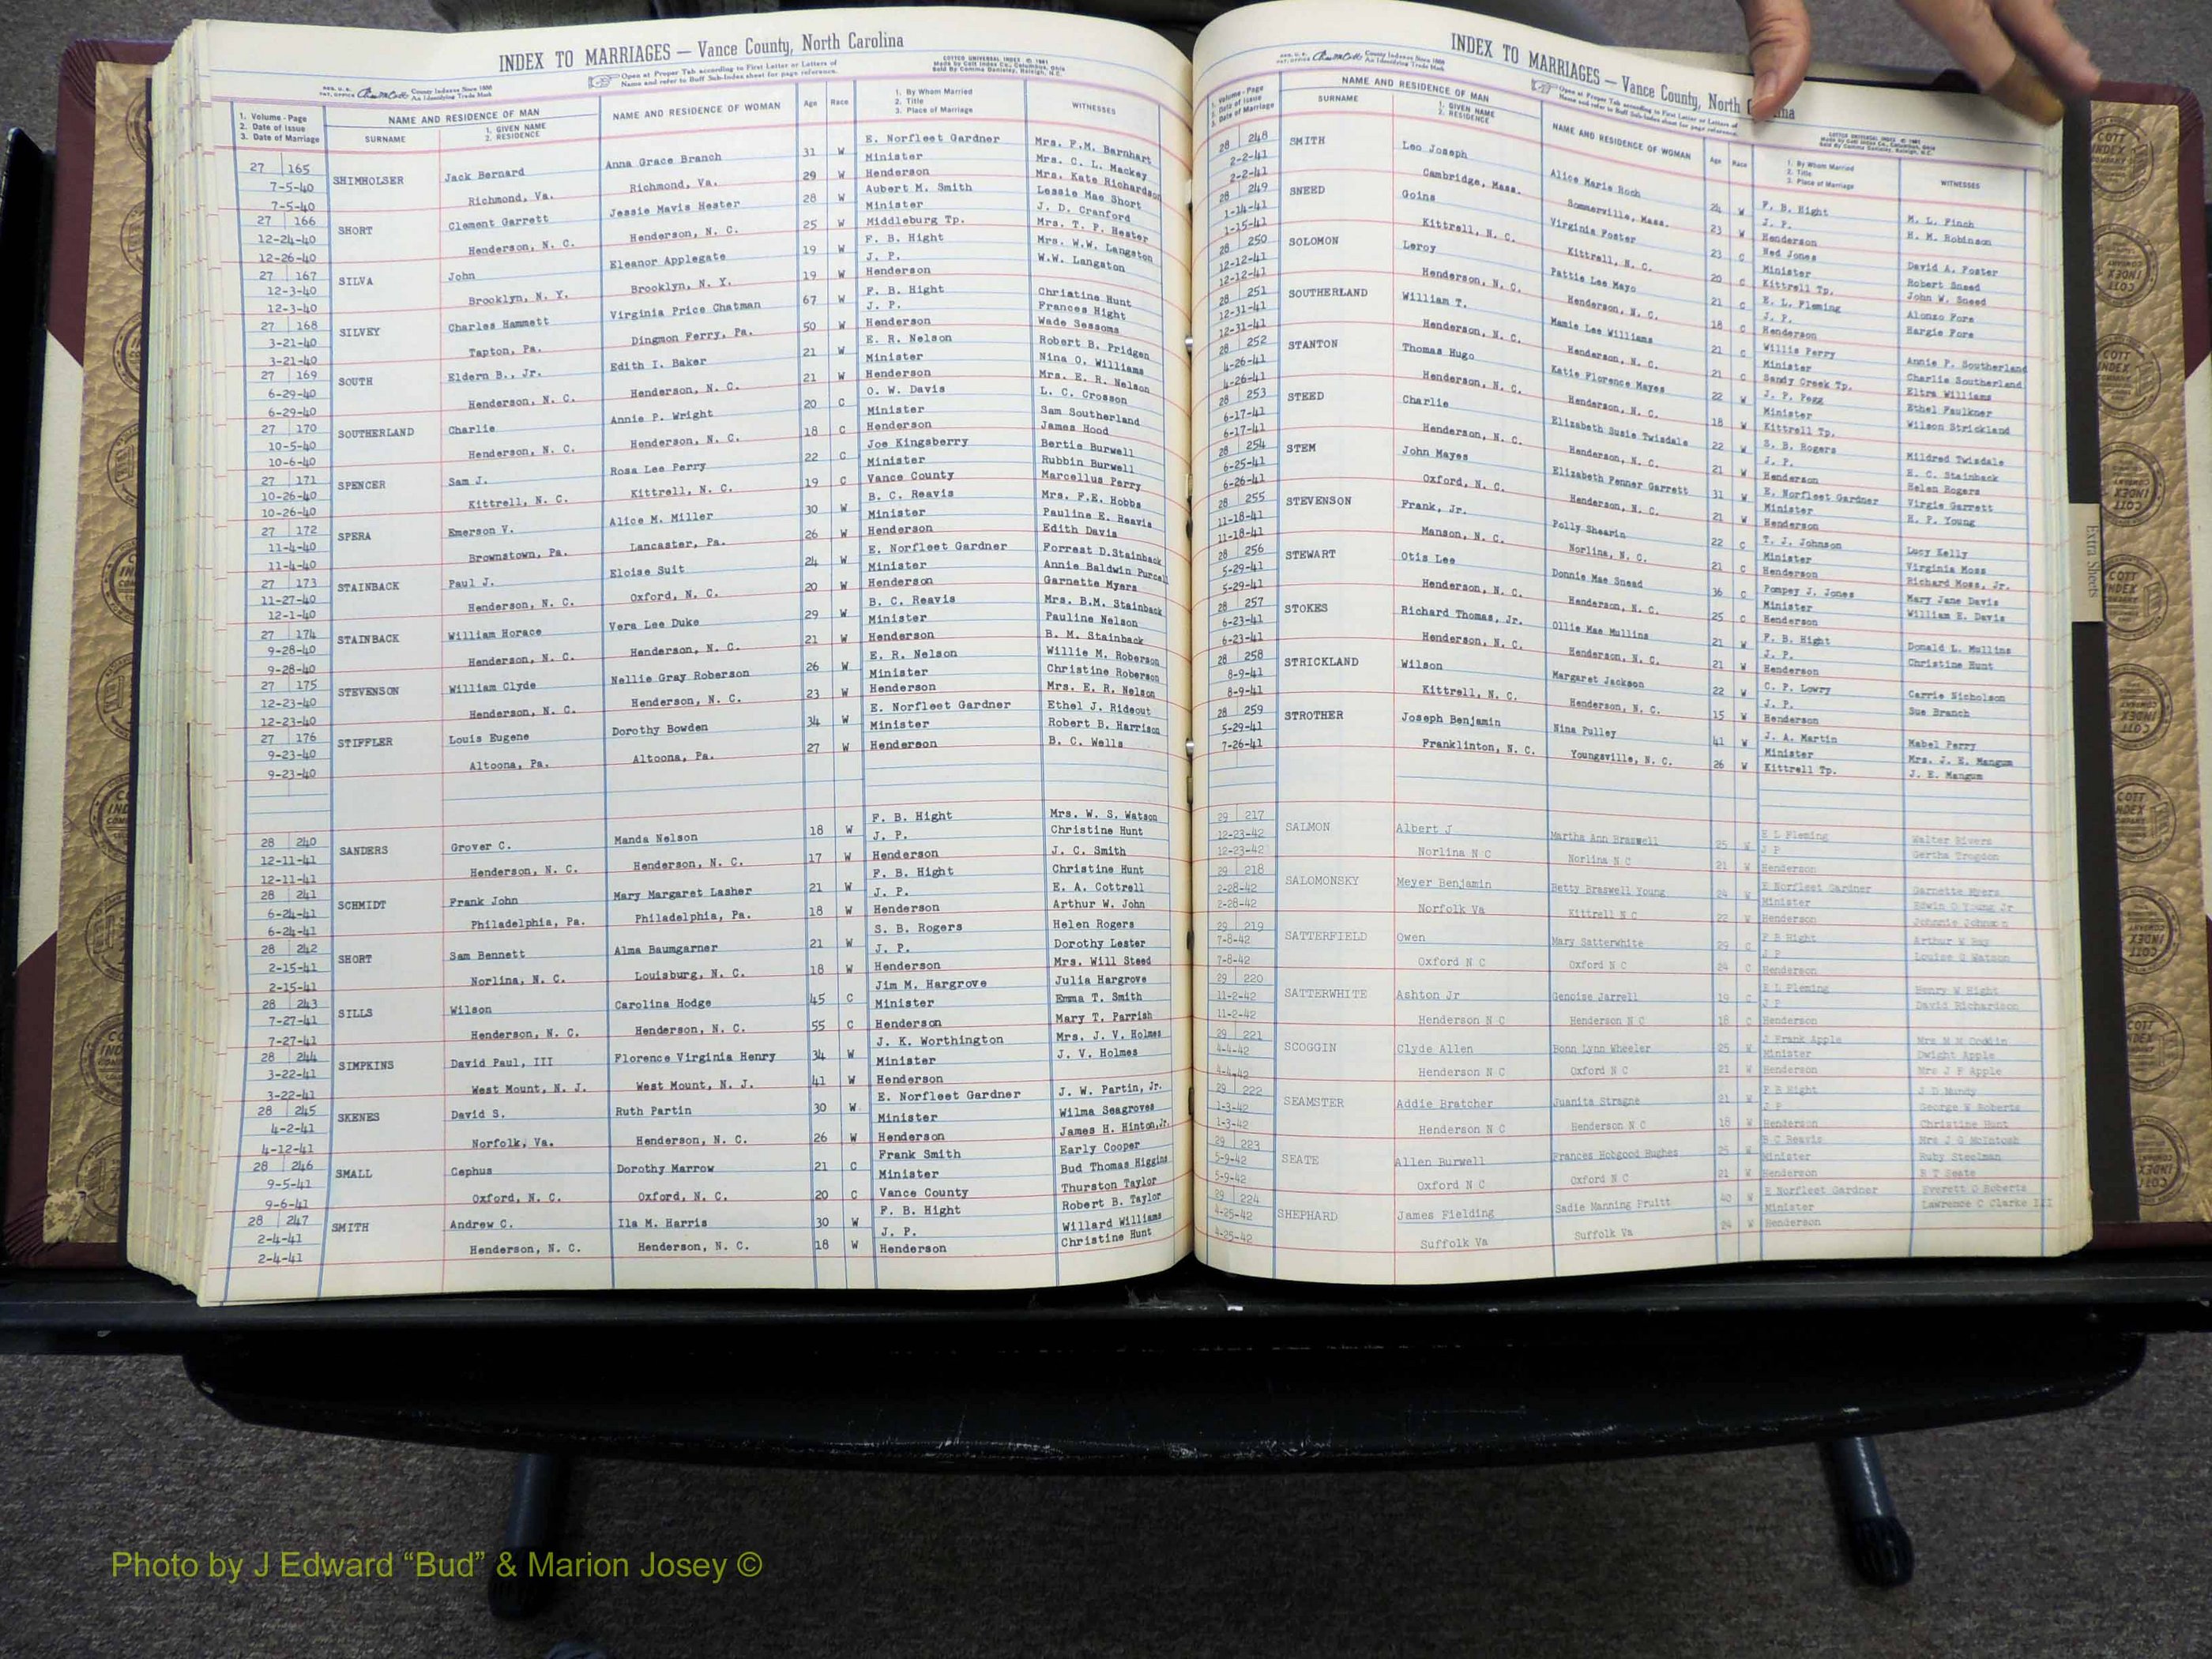 INDEX TO MARRIAGES — Vance County, North Carolina
Open at Proper Tab according to First Letter or Letters of
Name and refer to Buff Sub-Index sheet for page reference.
1. Volume - Page
2. Date of Issue
3. Date of Marriage
NAME AND RESIDENCE OF MAN
SURNAME
1. GIVEN NAME
2. RESIDENCE
NAME AND RESIDENCE OF WOMAN
Age
Race
1. By Whom Married
2. Title
3. Place of Marriage
WITNESSES
27 165 SHIMHOLSER Jack Bernard Anna Grace Branch 31 W E. Norfleet Gardner Mrs. F.M. Barnhart
7-5-40 Minister Mrs. C. L. Mackey
7-5-40 Richmond, Va. Richmond, Va. 29 W Henderson Mrs. Kate Richardson
27 166 SHORT Clement Garrett Jessie Mavis Hester 28 W Aubert M. Smith Lessie Mae Short
12-24-40 Minister J. D. Cranford
12-26-40 Henderson, N. C. Henderson, N. C. 25 W Middleburg Tp. Mrs. T. P. Hester
27 167 SILVA John Eleanor Applegate 19 W F. B. Hight Mrs. W.W. Langston
12-3-40 J. P. W.W. Langston
12-3-40 Brooklyn, N. Y. Brooklyn, N. Y. 19 W Henderson
27 168 SILVEY Charles Hammett Virginia Price Chatman 67 W F. B. Hight Christine Hunt
3-21-40 J. P. Frances Hight
3-21-40 Tapton, Pa. Dingmon Ferry, Pa. 50 W Henderson Wade Sessoms
27 169 SOUTH Eldern B., Jr. Edith I. Baker 21 W E. R. Nelson Robert B. Pridgen
6-29-40 Minister Nina O. Williams
6-29-40 Henderson, N. C. Henderson, N. C. 21 W Henderson Mrs. E. R. Nelson
27 170 SOUTHERLAND Charlie Annie P. Wright 20 C O. W. Davis L. C. Crosson
10-5-40 Minister Sam Southerland
10-6-40 Henderson, N. C. Henderson, N. C. 18 C Henderson James Hood
27 171 SPENCER Sam J. Rosa Lee Perry 22 C Joe Kingsberry Bertie Burwell
10-26-40 Minister Rubbin Burwell
10-26-40 Kittrell, N. C. Kittrell, N. C. 19 C Vance County Marcellus Perry
27 172 SPERA Emerson V. Alice M. Miller 30 W B. C. Reavis Mrs. F.E. Hobbs
11-4-40 Minister Pauline E. Reavis
11-4-40 Brownstown, Pa. Lancaster, Pa. 26 W Henderson Edith Davis
27 173 STAINBACK Paul J. Eloise Suit 24 W E. Norfleet Gardner Forrest D.Stainback
11-27-40 Minister Annie Baldwin Purcell
12-1-40 Henderson, N. C. Oxford, N. C. 20 W Henderson Garnette Myers
27 174 STAINBACK William Horace Vera Lee Duke 29 W B. C. Reavis Mrs. B.M. Stainback
9-28-40 Minister Pauline Nelson
9-28-40 Henderson, N. C. Henderson, N. C. 21 W Henderson B. M. Stainback
27 175 STEVENSON William Clyde Nellie Gray Roberson 26 W E. R. Nelson Willie M. Roberson
12-23-40 Minister Christine Roberson
12-23-40 Henderson, N. C. Henderson, N. C. 23 W Henderson Mrs. E. R. Nelson
27 176 STIFFLER Louis Eugene Dorothy Bowden 34 W E. Norfleet Gardner Ethel J. Rideout
9-23-40 Minister Robert B. Harrison
9-23-40 Altoona, Pa. Altoona, Pa. 27 W Henderson B. C. Wells
28 240 SANDERS Grover C. Manda Nelson 18 W F. B. Hight Mrs. W. S. Watson
12-11-41 J. P. Christine Hunt
12-11-41 Henderson, N. C. Henderson, N. C. 17 W Henderson J. C. Smith
28 241 SCHMIDT Frank John Mary Margaret Lasher 21 W F. B. Hight Christine Hunt
6-24-41 J. P. E. A. Cottrell
6-24-41 Philadelphia, Pa. Philadelphia, Pa. 18 W Henderson Arthur W. John
28 242 SHORT Sam Bennett Alma Baumgarner 21 W S. B. Rogers Helen Rogers
2-15-41 J. P. Dorothy Lester
2-15-41 Norlina, N. C. Louisburg, N. C. 18 W Henderson Mrs. Will Steed
28 243 SILLS Wilson Carolina Hodge 45 C Jim M. Hargrove Julia Hargrove
7-27-41 Minister Emma T. Smith
7-27-41 Henderson, N. C. Henderson, N. C. 55 C Henderson Mary T. Parrish
28 244 SIMPKINS David Paul, III Florence Virginia Henry 34 W J. K. Worthington Mrs. J. V. Holmes
3-22-41 Minister J. V. Holmes
3-22-41 West Mount, N. J. West Mount, N. J. 41 W Henderson
28 245 SKENES David S. Ruth Partin 30 W E. Norfleet Gardner J. W. Partin, Jr.
4-2-41 Minister Wilma Seagroves
4-12-41 Norfolk, Va. Henderson, N. C. 26 W Henderson James H. Hinton,Jr.
28 246 SMALL Cephus Dorothy Marrow 21 C Frank Smith Early Cooper
9-5-41 Minister Bud Thomas Higgins
9-6-41 Oxford, N. C. Oxford, N. C. 20 C Vance County Thurston Taylor
28 247 SMITH Andrew C. Ila M. Harris 30 W F. B. Hight Robert B. Taylor
2-4-41 J. P. Willard Williams
2-4-41 Henderson, N. C. Henderson, N. C. 18 W Henderson Christine Hunt
INDEX TO MARRIAGES — Vance County, North
Open at Proper Tab according to First Letter or Letters of
Name and refer to Buff Sub-Index sheet for page reference.
1. Volume - Page
2. Date of Issue
3. Date of Marriage
NAME AND RESIDENCE OF MAN
SURNAME
1. GIVEN NAME
2. RESIDENCE
NAME AND RESIDENCE OF WOMAN
Age
Race
1. By Whom Married
2. Title
3. Place of Marriage
WITNESSES
28 248 SMITH Leo Joseph Alice Maria Roch 24 W F. B. Hight M. L. Finch
2-2-41 J. P. H. M. Robinson
2-2-41 Cambridge, Mass. Sommerville, Mass. 23 W Henderson
28 249 SNEED Goins Virginia Foster 23 C Ned Jones David A. Foster
1-14-41 Minister Robert Sneed
1-15-41 Kittrell, N. C. Kittrell, N. C. 20 C Kittrell Tp. John W. Sneed
28 250 SOLOMON Leroy Pattie Lee Mayo 21 C E. L. Fleming Alonzo Fore
12-12-41 J. P. Hargie Fore
12-12-41 Henderson, N. C. Henderson, N. C. 18 C Henderson
28 251 SOUTHERLAND William T. Mamie Lee Williams 21 C Willis Perry Annie P. Southerland
12-31-41 Minister Charlie Southerland
12-31-41 Henderson, N. C. Henderson, N. C. 21 C Sandy Creek Tp. Eltra Williams
28 252 STANTON Thomas Hugo Katie Florence Mayes 22 W J. P. Pegg Ethel Faulkner
4-26-41 Minister Wilson Strickland
4-26-41 Henderson, N. C. Henderson, N. C. 18 W Kittrell Tp.
28 253 STEED Charlie Elizabeth Susie Twisdale 22 W S. B. Rogers Mildred Twisdale
6-17-41 J. P. H. C. Stainback
6-17-41 Henderson, N. C. Henderson, N. C. 21 W Henderson Helen Rogers
28 254 STEM John Mayes Elizabeth Penner Garrett 31 W E. Norfleet Gardner Virgie Garrett
6-25-41 Minister H. P. Young
6-26-41 Oxford, N. C. Henderson, N. C. 21 W Henderson
28 255 STEVENSON Frank, Jr. Polly Shearin 22 C T. J. Johnson Lucy Kelly
11-18-41 Minister Virginia Moss
11-18-41 Manson, N. C. Norlina, N. C. 21 C Henderson Richard Moss, Jr.
28 256 STEWART Otis Lee Donnie Mae Snead 36 C Pompey J. Jones Mary Jane Davis
5-29-41 Minister William E. Davis
5-29-41 Henderson, N. C. Henderson, N. C. 25 C Henderson
28 257 STOKES Richard Thomas, Jr. Ollie Mae Mullins 21 W F. B. Hight Donald L. Mullins
6-23-41 J. P. Christine Hunt
6-23-41 Henderson, N. C. Henderson, N. C. 21 W Henderson
28 258 STRICKLAND Wilson Margaret Jackson 22 W C. P. Lowry Carrie Nicholson
8-9-41 J. P. Sue Branch
8-9-41 Kittrell, N. C. Henderson, N. C. 15 W Henderson
28 259 STROTHER Joseph Benjamin Nina Pulley 41 W J. A. Martin Mabel Perry
5-29-41 Minister Mrs. J. E. Mangum
7-26-41 Franklinton, N. C. Youngsville, N. C. 26 W Kittrell Tp. J. E. Mangum
29 217 SALMON Albert J Martha Ann Braswell 25 W E L Fleming Walter Rivers
12-23-42 J P Gertha Trogdon
12-23-42 Norlina N C Norlina N C 21 W Henderson
29 218 SALOMONSKY Meyer Benjamin Betty Braswell Young 24 W E Norfleet Gardner Garnette Myers
2-28-42 Minister Edwin O Young Jr
2-28-42 Norfolk Va Kittrell N C 22 W Henderson Johnnie Johnson
29 219 SATTERFIELD Owen Mary Satterwhite 29 C F B Hight Arthur W
7-8-42 J P Louise G Watson
7-8-42 Oxford N C Oxford N C 24 C Henderson
29 220 SATTERWHITE Ashton Jr Genoise Jarrell 19 C E L Fleming Henry W Hight
11-2-42 J P David Richardson
11-2-42 Henderson N C Henderson N C 18 C Henderson
29 221 SCOGGIN Clyde Allen Bonn Lynn Wheeler 25 W J Frank Apple Mrs M M
4-4-42 Minister Dwight Apple
4-4-42 Henderson N C Oxford N C 21 W Henderson Mrs J F Apple
29 222 SEAMSTER Addie Bratcher Juanita 21 W F B Hight J D Mundy
1-3-42 J P George W Roberts
1-3-42 Henderson N C Henderson N C 18 W Henderson Christine Hunt
29 223 SEATE Allen Burwell Frances Hobgood Hughes 25 W B C Reavis Mrs J G McIntosh
5-9-42 Minister Ruby Steelman
5-9-42 Oxford N C Oxford N C 21 W Henderson R T Seate
29 224 SHEPHARD James Fielding Sadie Manning Pruitt 40 W E Norfleet Gardner Everett O Roberts
4-25-42 Minister Lawrence C Clarke III
4-25-42 Suffolk Va Suffolk Va 24 W Henderson
Extra Sheets
Photo by J Edward “Bud” & Marion Josey ©